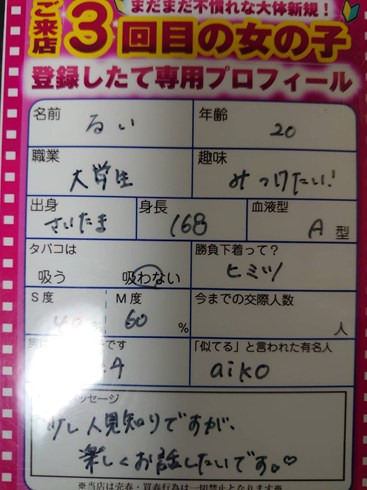 ご来店
まだまだ不慣れな大体新規!
3回目の女の子
登録したて専用プロフィール
名前 るい 年齢 20
職業 大学生 趣味 みつけたい!
出身 さいたま 身長 168 血液型 A型
タバコは 吸う 吸わない 勝負下着って? ヒミツ
S度 40 M度 60% 今までの交際人数 人
です 「似てる」と言われた有名人 aiko
メッセージ
少し人見知りですが、
楽しくお話したいです。♡
※当店は売春・買春行為は一切禁止となります※